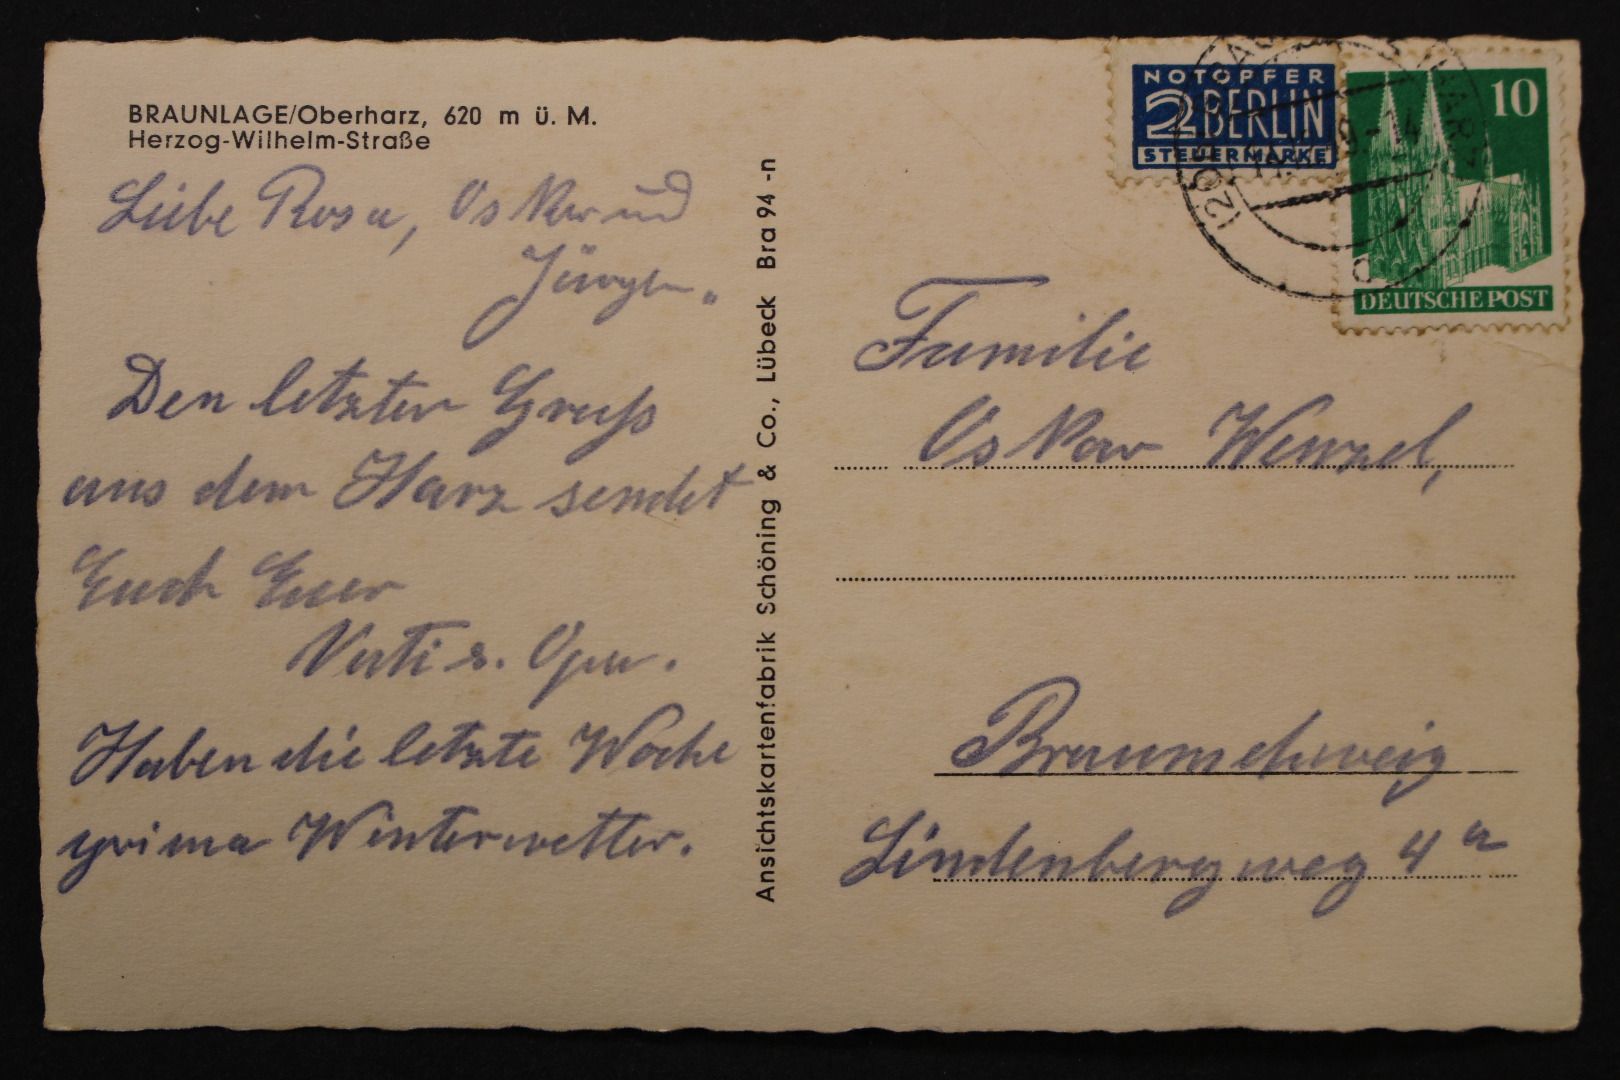 BRAUNLAGE/Oberharz, 620 m ü. M.
Herzog-Wilhelm-Straße
Liebe Rosa, Oskar und
Jürgen"
Den letzten Gruß
aus dem Harz sendet
Euch Euer
Vati u. Opa.
Haben die letzte Woche
prima Winterwetter.
Ansichtskartenfabrik Schöning & Co., Lübeck Bra 94 -n
NOTOPFER
2 BERLIN
STEUERMARKE
10
DEUTSCHE POST
Familie
Oskar Wenzel,
Braunschweig
Lindenbergweg 4 a